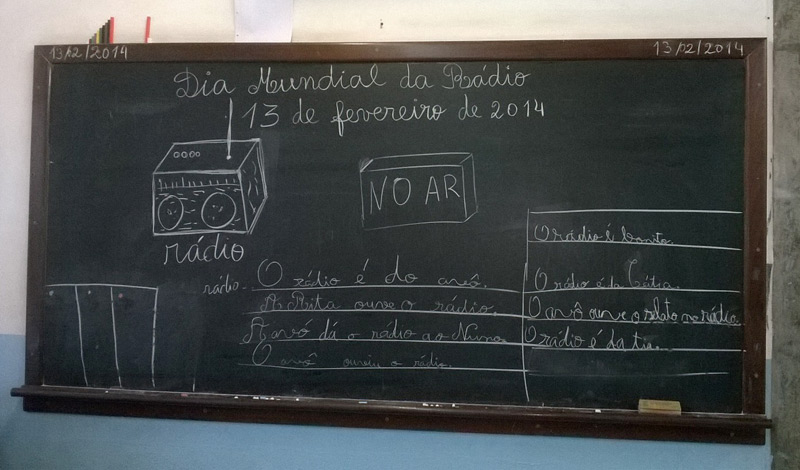 13/02/2014
13/02/2014
Dia Mundial da Rádio
13 de fevereiro de 2014
NO AR
rádio
rádio - O rádio é do avô.
A Rita ouve o rádio.
A avó dá o rádio ao Nuno.
O avô ouviu o rádio.
O rádio é bonito.
O rádio é da Cátia.
O avô ouve o relato no rádio.
O rádio é da tia.